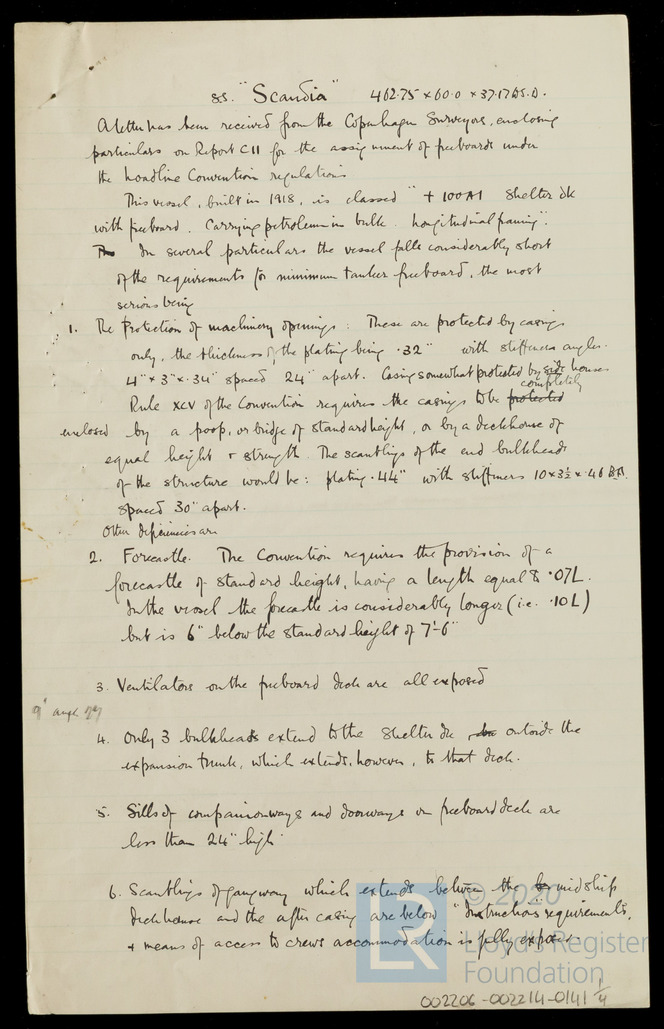 s.s. "Scandia" 462.75 × 60.0 × 37.17 B.S.D.
A letter has been received from the Copenhagen Surveyors, enclosing
particulars on Report C11 for the assignment of freeboards under
the Loadline Convention regulations
This vessel, built in 1918, is classed "+ 100A1 Shelter dk
with freeboard. Carrying petroleum in bulk. Longitudinal framing".
In several particulars the vessel falls considerably short
of the requirements for minimum tanker freeboard, the most
serious being
1. The Protection of machinery openings: These are protected by casings
only, the thickness of the plating being .32" with stiffeners angles
4" × 3" × .34" spaced 24" apart. Casing somewhat protected by side houses
completely
Rule XCV of the Convention requires the casings to be protected
enclosed by a poop, or bridge of standard height, or by a deckhouse of
equal height + strength. The scantlings of the end bulkheads
of the structure would be: plating .44" with stiffeners 10 × 3½ × .46 B.A.
spaced 30" apart.
Other deficiencies are
2. Forecastle. The Convention requires the provision of a
forecastle of standard height, having a length equal to .07L.
In the vessel the forecastle is considerably longer (i.e. .10L)
but is 6" below the standard height of 7'-6"
3. Ventilators on the freeboard deck are all exposed
4. Only 3 bulkheads extend to the Shelter dk outside the
expansion trunk, which extends, however, to that deck.
5. Sills of companionways and doorways on freeboard deck are
less than 24" high
6. Scantlings of gangway which extends between the midship
deckhouse and the after casing are below "Instructions" requirements,
+ means of access to crews accommodation is fully exposed.
© 2020
LR
Lloyd's Register
Foundation
002206-002214-0141 1/4